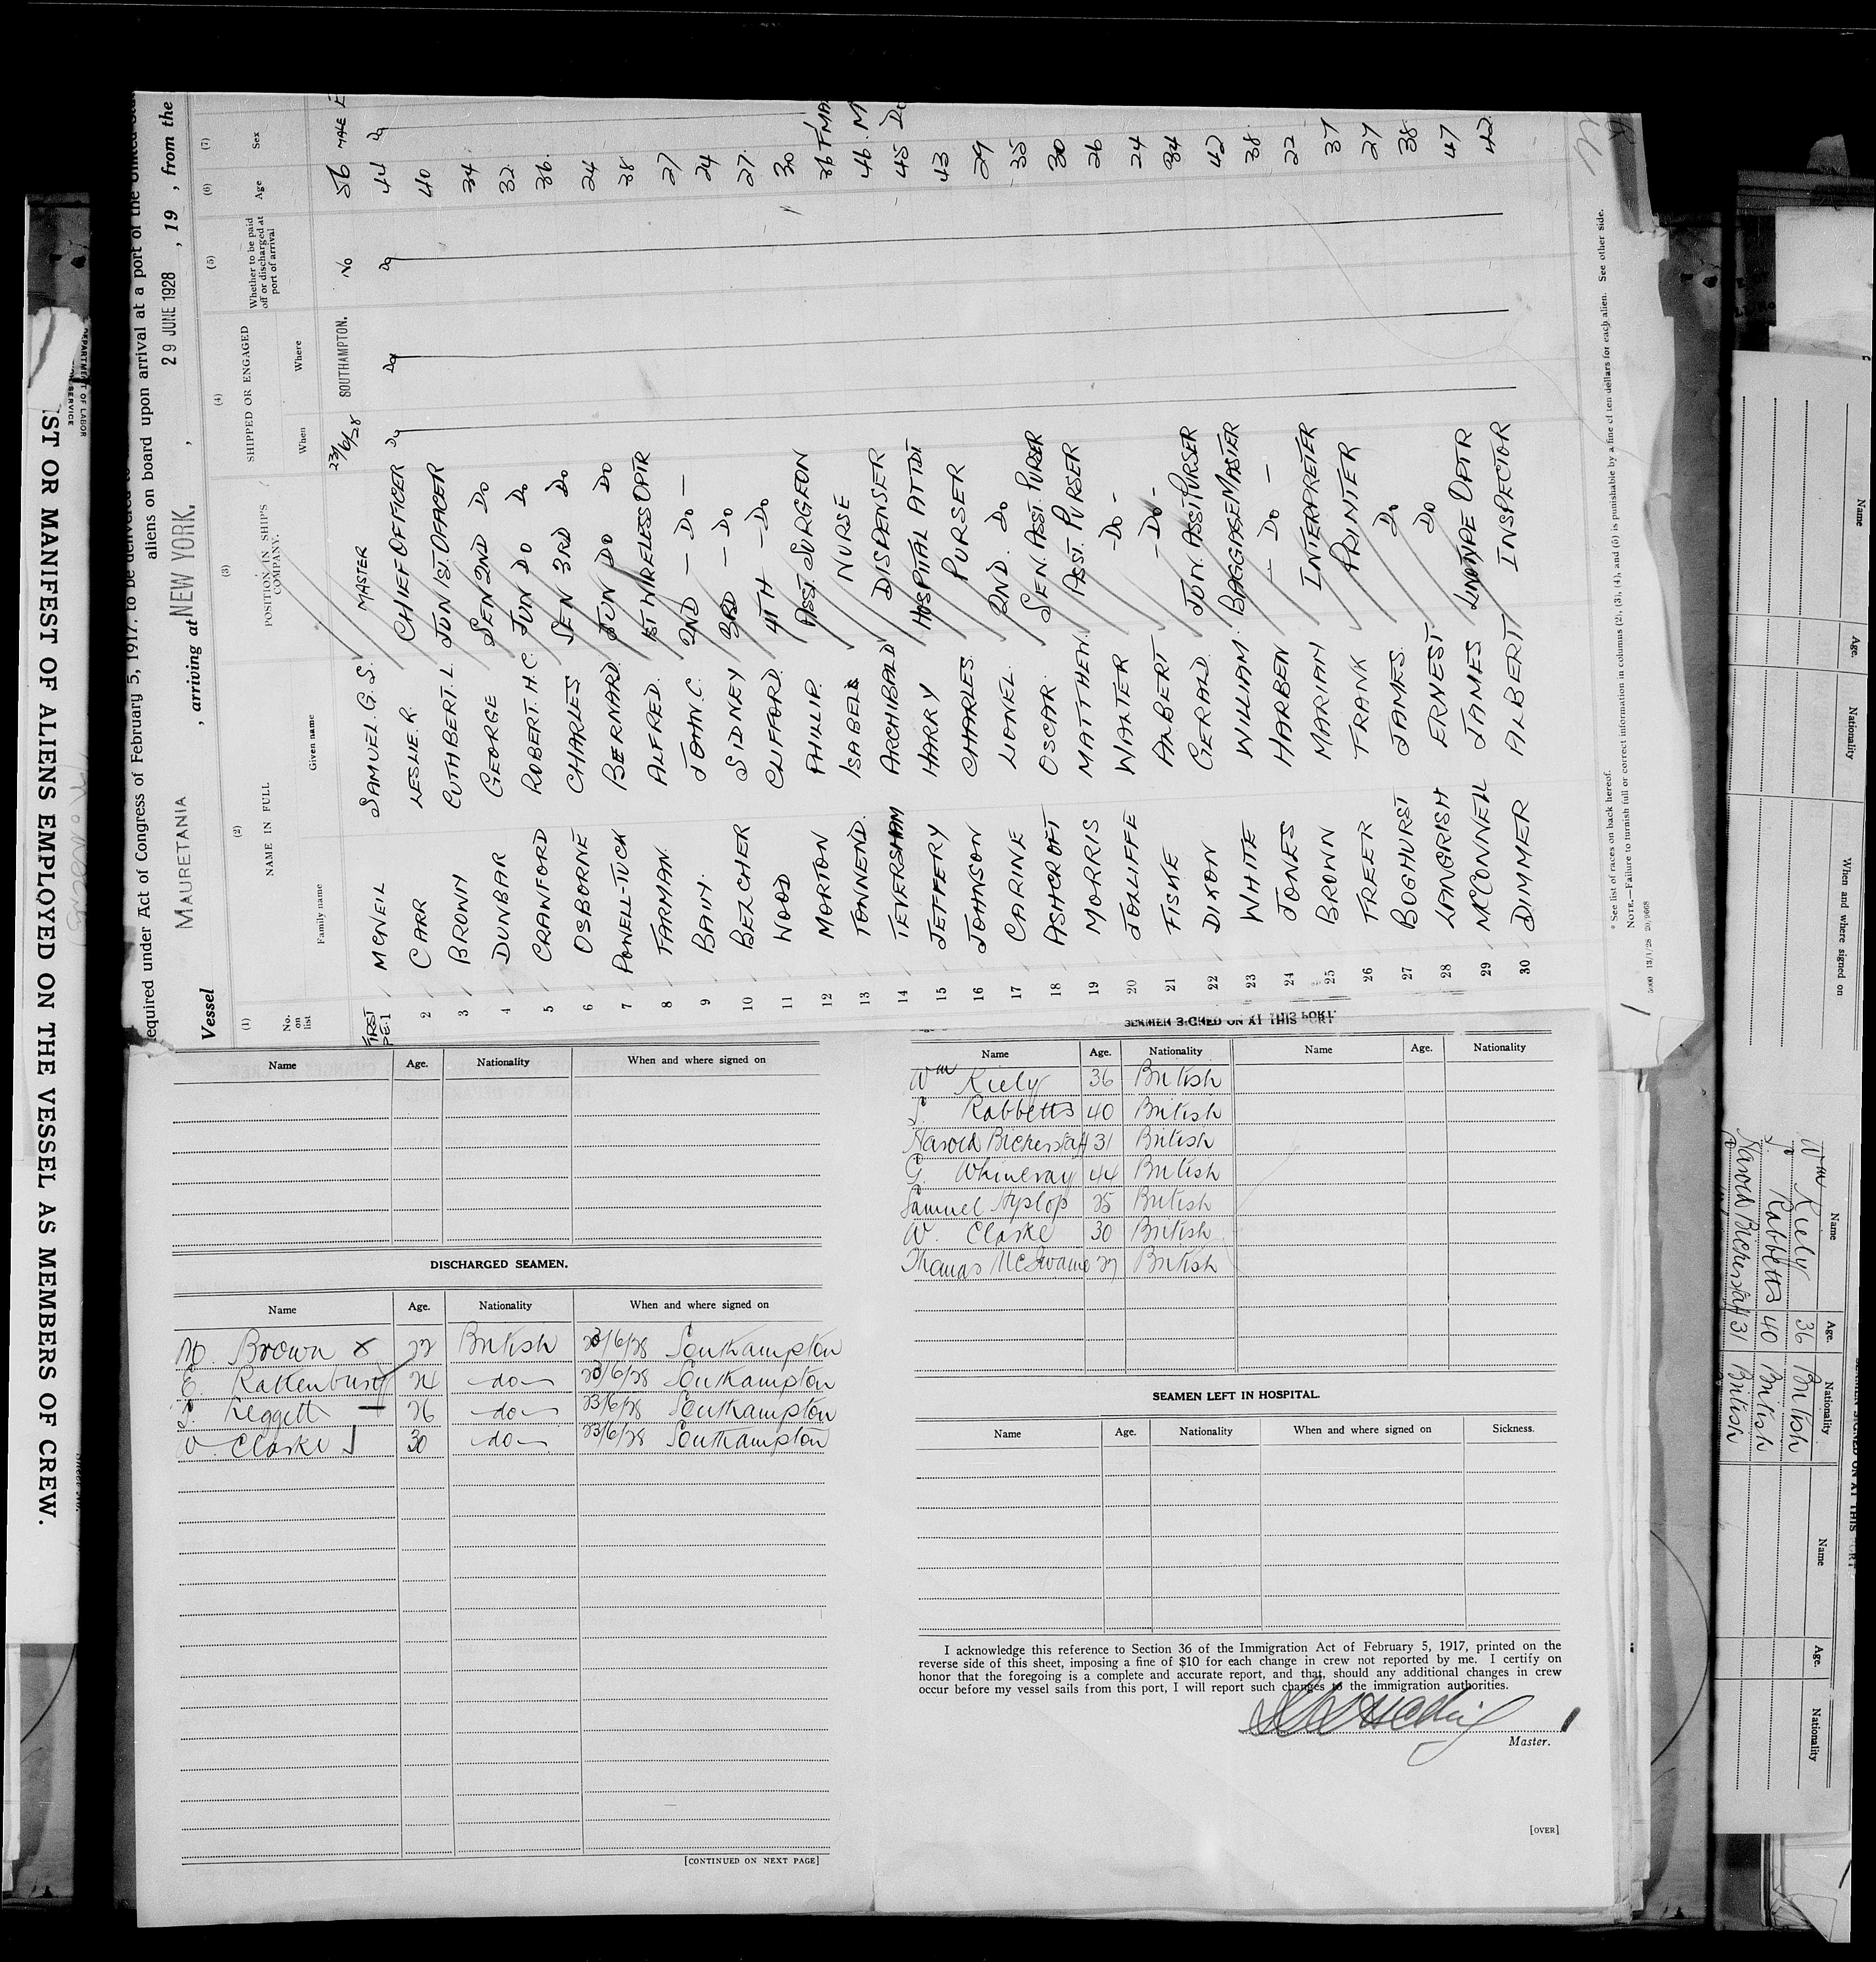 LIST OR MANIFEST OF ALIENS EMPLOYED ON THE VESSEL AS MEMBERS OF CREW.
DEPARTMENT OF LABOR
required under Act of Congress of February 5, 1917, to be delivered to
aliens on board upon arrival at a port of the United
Vessel MAURETANIA , arriving at NEW YORK. , 29 JUNE 1928 , 19 , from the
(1) (2) (3) (4) (5) (6) (7)
No. on list NAME IN FULL POSITION IN SHIP'S COMPANY. SHIPPED OR ENGAGED Whether to be paid off or discharged at port of arrival Age Sex
Family name Given name When Where
FIRST PGE 1 MCNEIL SAMUEL. G. S. MASTER 23/6/28 SOUTHAMPTON. No 56 MALE
2 CARR LESLIE. R. CHIEF OFFICER Do Do Do 44 Do
3 BROWN CUTHBERT. L. JUN 1ST. OFFICER 40
4 DUNBAR GEORGE SEN 2ND Do 34
5 CRAWFORD ROBERT. H. C. JUN Do Do 32
6 OSBORNE CHARLES SEN 3RD Do 36
7 POWELL-TUCK BERNARD. JUN Do Do 24
8 FARMAN. ALFRED. 1ST WIRELESS OPTR 38
9 JOHN. C. 2ND - Do - 27
10 BELCHER SIDNEY 3RD - Do 24
11 WOOD CLIFFORD. 4TH - Do 27
12 MORTON PHILLIP. ASST. SURGEON 30
13 TOWNEND. ISABEL NURSE 36
14 TEVERSHAM ARCHIBALD DISPENSER 46. M
15 JEFFERY HARRY HOSPITAL ATTDT 45 Do
16 JOHNSON CHARLES. PURSER 43
17 CARINE LIONEL. 2ND. Do 29
18 ASHCROFT OSCAR. SEN. ASST. PURSER 35
19 MORRIS MATTHEW. ASST. PURSER 30
20 JOLLIFFE WALTER - Do - 26
21 FISKE ALBERT - Do - 24
22 DIXON GERALD. JUN. ASST PURSER 34
23 WHITE WILLIAM. BAGGAGE MASTER 42
24 JONES HARBEN - Do - 38
25 BROWN MARIAN INTERPRETER 22
26 TREER FRANK PRINTER 37
27 BOGHURST JAMES. Do 27
28 LANGRISH ERNEST Do 38
29 MCCONNELL JAMES LINOTYPE OPTR 47
30 DIMMER ALBERT INSPECTOR 42
* See list of races on back hereof.
NOTE.—Failure to furnish full or correct information in columns (2), (3), (4), and (5) is punishable by a fine of ten dollars for each alien. See other side.
5000 13/1/28
Name Age. Nationality When and where signed on
DISCHARGED SEAMEN.
Name Age. Nationality When and where signed on
Brown x 22 British 23/6/28 Southampton
E. Rattenbury 24 do 23/6/28 Southampton
Leggett 26 do 23/6/28 Southampton
W. Clarke 30 do 23/6/28 Southampton
[CONTINUED ON NEXT PAGE]
SEAMEN SIGNED ON AT THIS PORT.
Name Age. Nationality Name Age. Nationality
Wm Kiely 36 British
Rabbetts 40 British
Harold Bickerstaff 31 British
G. Whineray 44 British
Samuel Hyslop 25 British
W. Clarke 30 British
Thomas 27 British
SEAMEN LEFT IN HOSPITAL.
Name Age. Nationality When and where signed on Sickness.
I acknowledge this reference to Section 36 of the Immigration Act of February 5, 1917, printed on the
reverse side of this sheet, imposing a fine of $10 for each change in crew not reported by me. I certify on
honor that the foregoing is a complete and accurate report, and that, should any additional changes in crew
occur before my vessel sails from this port, I will report such changes to the immigration authorities.
Master.
[OVER]
Name Age. Nationality When and where signed on
Name Age. Nationality Name Age. Nationality
Wm Kiely 36 British
Rabbetts 40 British
Harold Bickerstaff 31 British